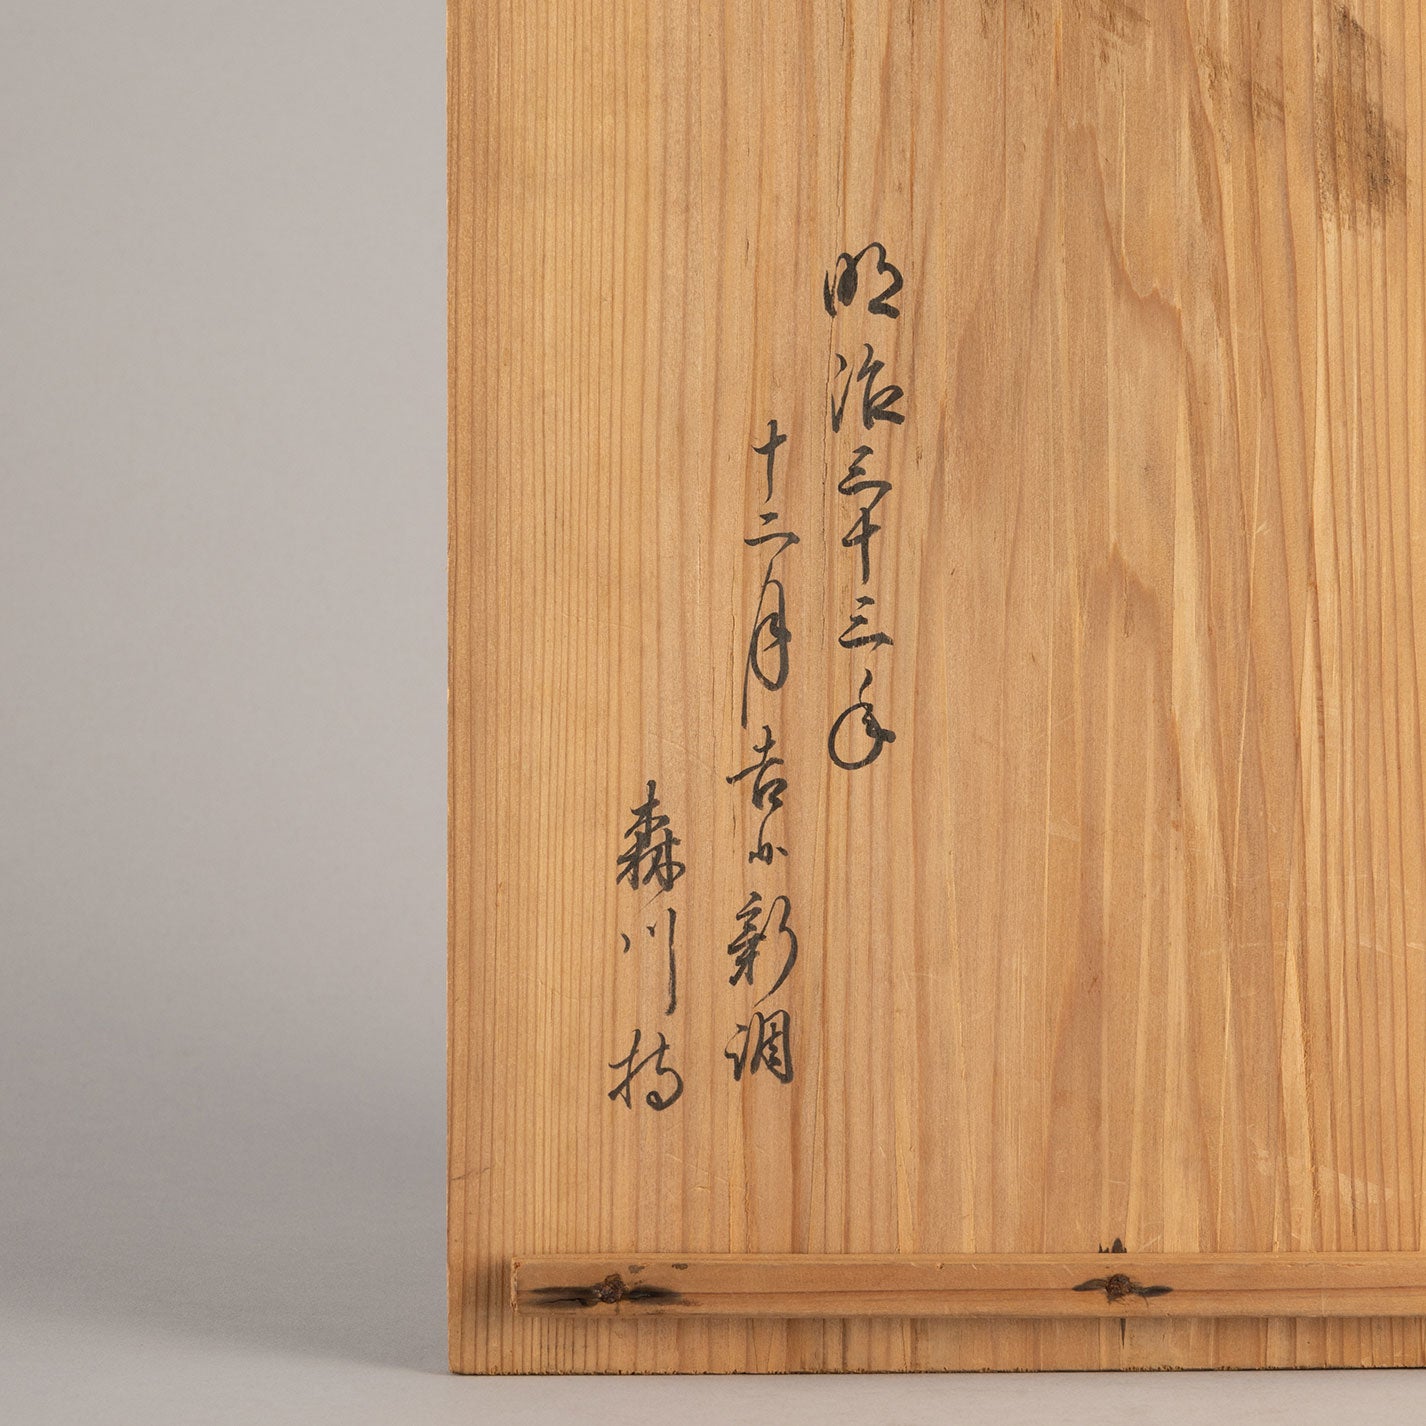 明治三十三年
十二月吉日新調
森川持